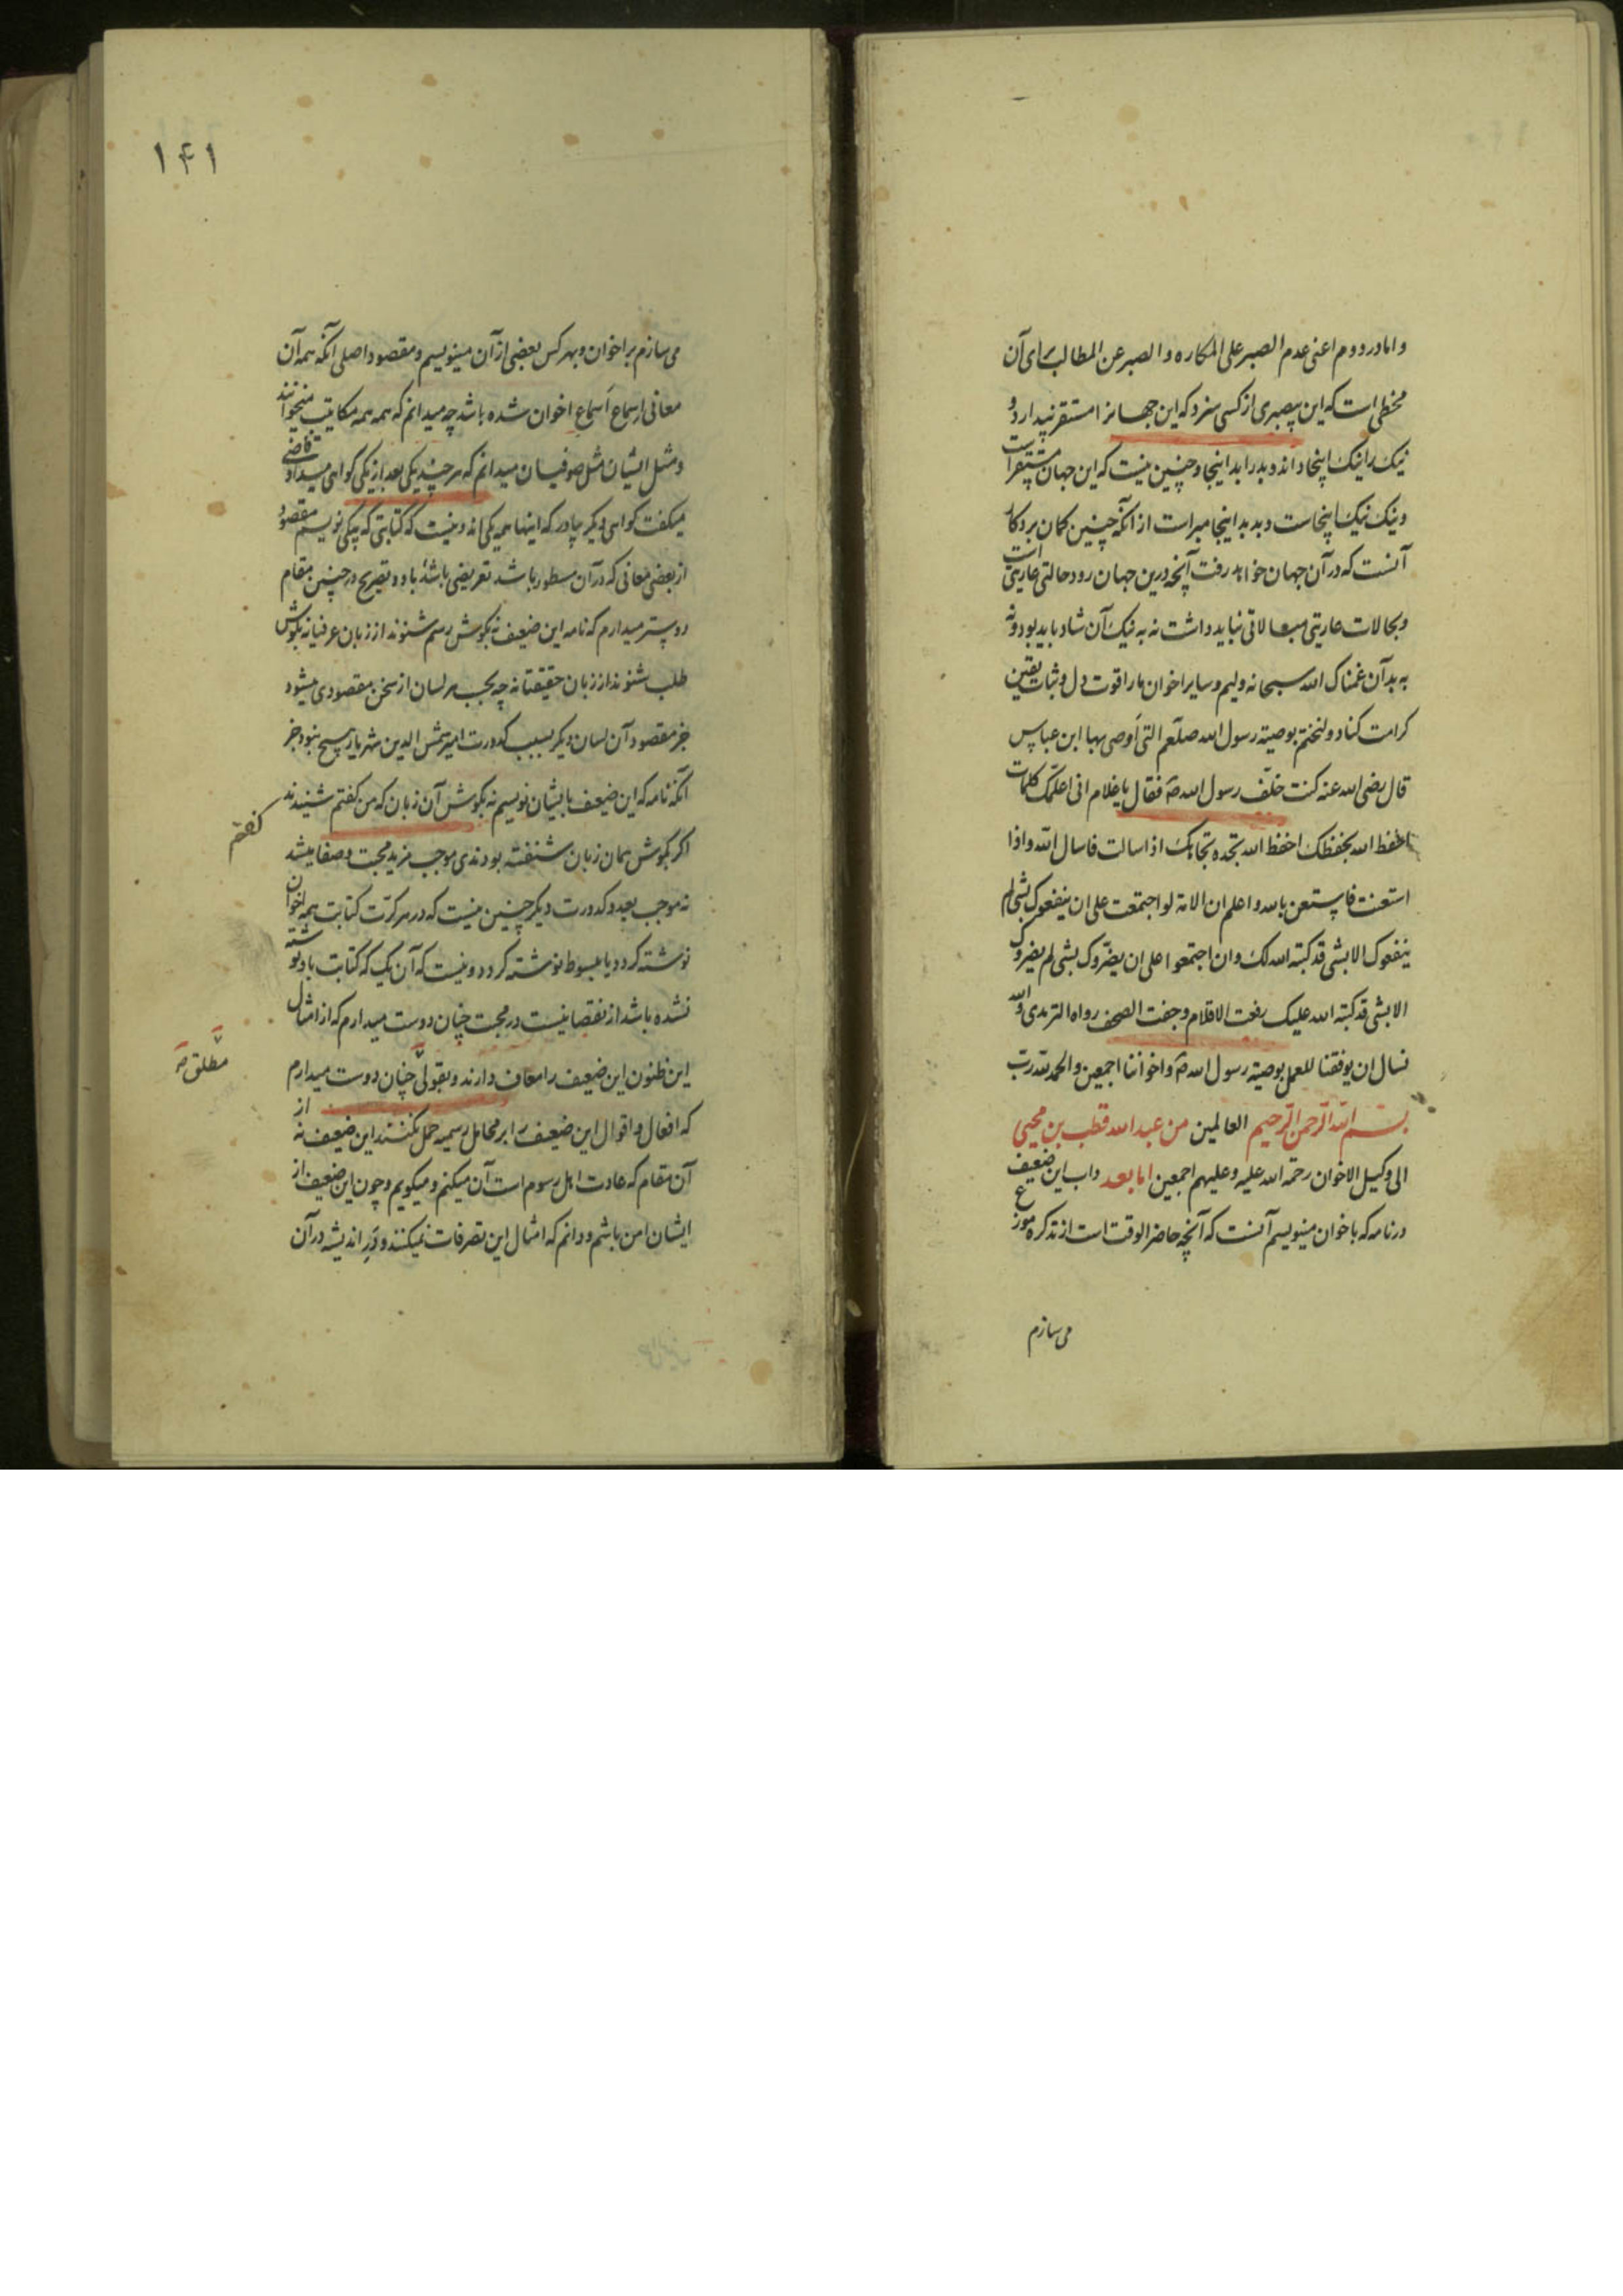 و اما در دوم اعنی عدم الصبر علی المکاره و الصبر عن المطالب برای آن
مخطی است که این بیصبری از کسی سزد که این جهانرا مستقر پندارد و
نیک را نیک اینجا داند و بد را بد اینجا و چنین نیست که این جهان مستقر است
و نیک نیک اینجاست و بد بد اینجا مبراست از آنکه چنین کمان برد کار
آنست که در آن جهان خواهد رفت آنچه درین جهان رود حالتی عاریتی است
و بحالات عاریتی مبالاتی نباید داشت نه به نیک آن شاد باید بود و نه
به بد آن غمناک الله سبحانه ولیم و سایر اخوان ما را قوت دل و ثبات یقین
کرامت کناد و لنختم بوصیة رسول الله صلعم التی اوصی بها ابن عباس
قال رضی الله عنه کنت خلف رسول الله صه فقال یا غلام انی اعلمک کلمات
احفظ الله یحفظک احفظ الله تجده تجاهک اذا سالت فاسال الله و اذا
استعنت فاستعن بالله و اعلم ان الامة لو اجتمعت علی ان ینفعوک بشی لم
ینفعوک الا بشی قد کتبه الله لک و ان اجتمعوا علی ان یضروک بشی لم یضروک
الا بشی قد کتبه الله علیک رفعت الاقلام و جفت الصحف رواه الترمدی والله
نسال ان یوفقنا للعمل بوصیة رسول الله صه و اخواننا اجمعین و الحمد لله رب
بسم الله الرحمن الرحیم العالمین من عبد الله قطب بن محیی
الی وکیل الاخوان رحمة الله علیه و علیهم اجمعین اما بعد داب این ضعیف
در نامه که باخوان مینویسم آنست که آنچه حاضر الوقت است از تذکره موزع
می سازم
۱۴۱
می سازم بر اخوان و بهر کس بعضی از آن مینویسم و مقصود اصلی آنکه همه آن
معانی ارسماع اسماع اخوان شده باشد چه میدانم که همه همه مکاتیب میخوانند
و مثل ایشان مثل صوفیان میدانم که هر چند یکی بعد از یکی کواهی میداد قاضی
میکفت کواهی دیکر بیاور که اینها همه یکی اند و نیست که کتابتی که بیکی نویسم مقصود
از بعضی معانی که در آن مسطور باشد تعریضی باشد باو و تصریح در چنین مقام
دوستر میدارم که نامه این ضعیف نه بکوش رسم شنوند از زبان عرفیانه بکوش
طلب شنوند از زبان حقیقتانه چه بحسب هر لسان از سخن مقصودی میشود
جز مقصود آن لسان دیکر بسبب کدورت امیر شمس الدین شهریار هیچ نبود جز
آنکه نامه که این ضعیف بایشان نویسم نه بکوش آن زبان که من کفتم شنیدند
کفتم
اکر بکوش همان زبان شنفته بودندی موجب مزید محبت و صفا میشد
نه موجب بعد و کدورت دیکر چنین نیست که در هر کرت کتابت همه اخوان
نوشته کردد یا مبسوط نوشته کردد و نیست که آن یک که کتابت باو نوشته
نشده باشد از نقصانیست در محبت چنان دوست میدارم که از امثال
مطلق صه
این ظنون این ضعیف را معاف دارند و بقولی چنان دوست میدارم
که افعال و اقوال این ضعیف را بر محامل رسمیه حمل نکنند این ضعیف نه از
آن مقام که عادت اهل رسوم است آن میکنم و میکویم و چون این ضعیف از
ایشان امن باشم و دانم که امثال این تصرفات نمیکنند و در اندیشه در آن